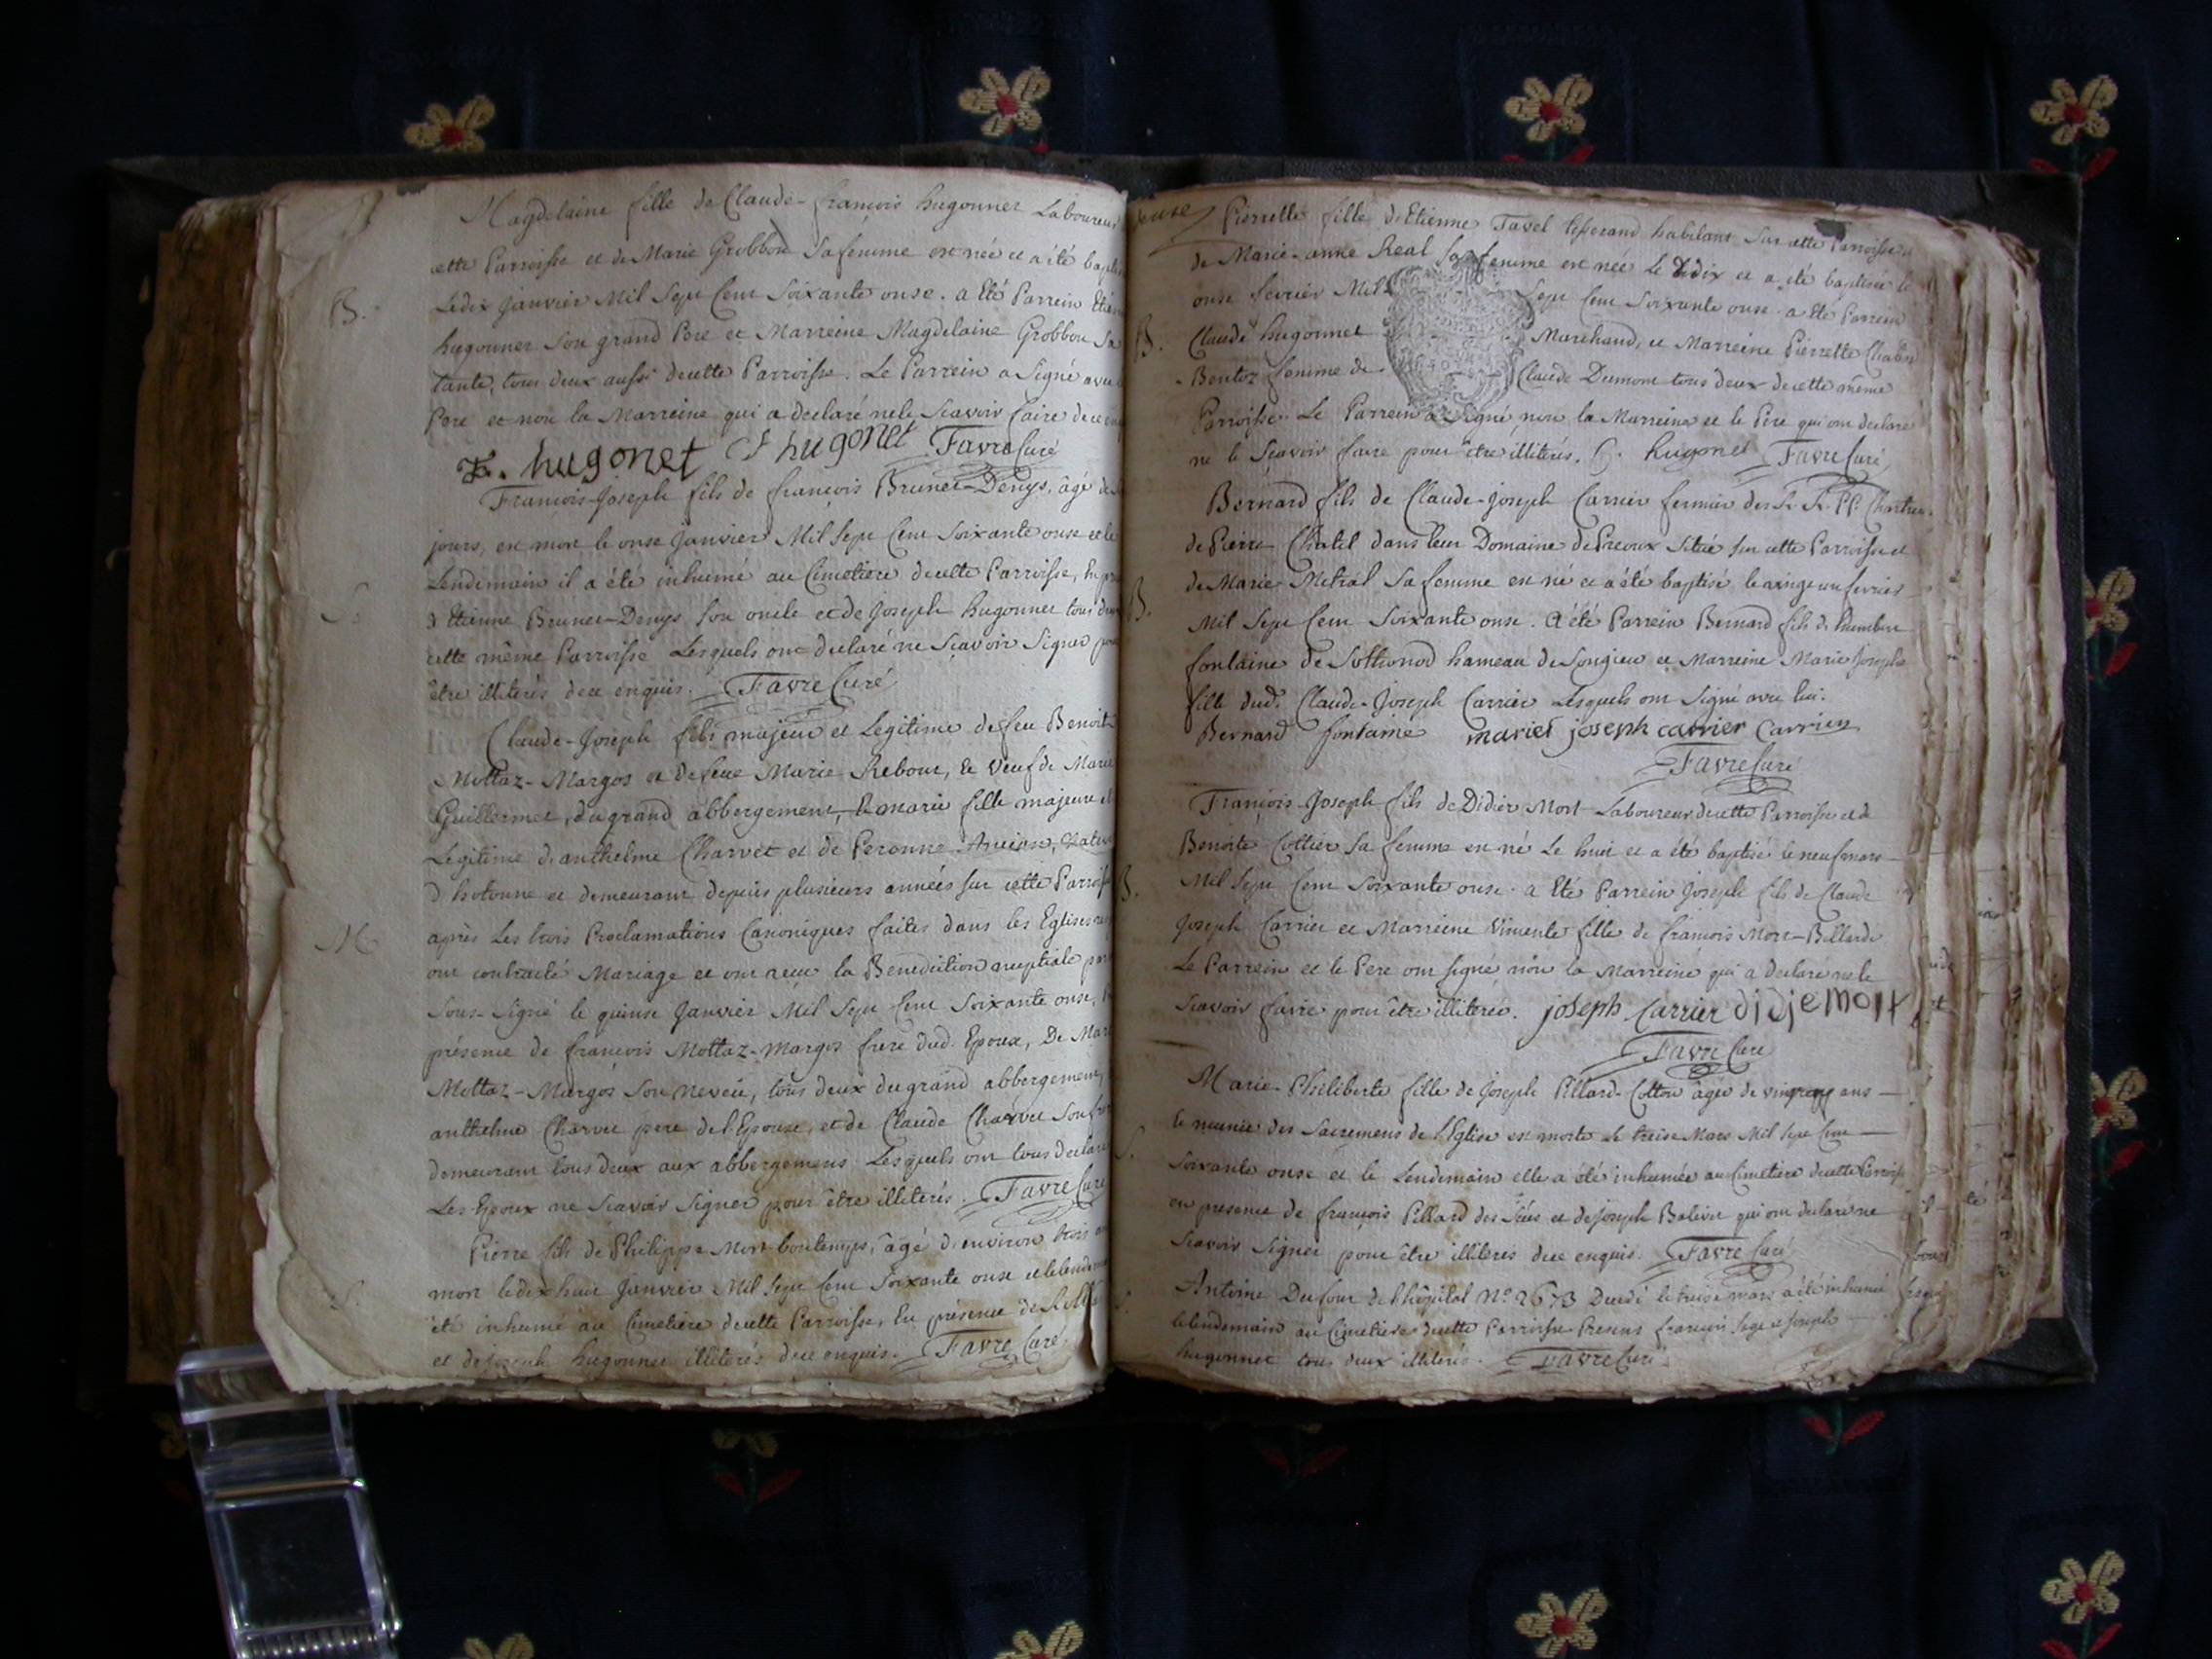 Magdelaine fille de Claude-françois hugonnet Laboureur
cette Parroisse et de Marie Grobbon Sa femme est née et a été bapti
B.
Le dix janvier Mil Sept Cent Soixante onse. a Eté Parrein Etien
hugonnet Son grand Pere et Marreine Magdelaine Grobbon Sa
tante, tous deux aussi de cette Parroisse. Le Parrein a Signé avec
Pere et non la Marreine qui a declaré ne le Scavoir faire de ce en
E. hugonet f hugonet Favre Curé
François-Joseph fils de françois Brunet-Denys, âgé de
jours, est mort le onse Janvier Mil Sept Cent Soixante onse et le
Lendemain il a été inhumé au Cimetiere de cette Parroisse, En pre
S.
d'Etienne Brunet-Denys Son oncle et de Joseph hugonnet tous deux
cette même Parroisse Lesquels ont declaré ne Scavoir Signer pour
être illiterés de ce enquis. Favre Curé
Claude-Joseph fils majeur et Legitime de feu Benoit
Mottaz-Margos et de feue Marie Rebout, Et Veuf de Marie
Guillermet, du grand abbergement, Et marie fille majeure et
Legitime d'anthelme Charvet et de Peronne Ancian, Natu
d'hotonne et demeurant depuis plusieurs années sur cette Parroisse
M.
après Les trois Proclamations Canoniques faites dans les Eglises
ont contracté Mariage et ont reçu la Benediction nuptiale par
Sous-Signé le quinse Janvier Mil Sept Cent Soixante onse,
présence de françois Mottaz-Margos frere dud. Epoux, De Mar
Mottaz-Margos Son Neveu, tous deux du grand abbergement,
anthelme Charvet pere de l'Epouse, et de Claude Charvet Son fre
demeurant tous deux aux abbergemens Lesquels ont tous declaré
Les Epoux ne Scavoir Signer pour être illiterés. Favre Curé
Pierre fils de Philippe Mort-bontemps, âgé d'environ trois
mort le dix huit Janvier Mil Sept Cent Soixante onse et le lendem
S.
été inhumé au Cimetiere de cette Parroisse, En présence de
et de Joseph hugonnet illiterés de ce enquis. Favre Curé
Pierrette fille d'Etienne Tavel tisserand habitant Sur cette Parroisse et
de Marie-anne Real Sa femme est née Le dix et a été baptisée le
onse fevrier Mil Sept Cent Soixante onse. a Eté Parrein
B.
Claude hugonnet Marchand, et Marreine Pierrette
Bentoz femme de Claude Dumont tous deux de cette même
Parroisse. Le Parrein a Signé, non la Marreine et le Pere qui ont declaré
ne le Scavoir faire pour être illiterés. C. hugonet Favre Curé
Bernard fils de Claude-joseph Carrier fermier des R. R. PP. Chartreu
de Pierre Chatel dans leur Domaine de Preoux Situé Sur cette Parroisse et
de Marie Metral Sa femme est né et a été baptisé le vingt un fevrier
B.
Mil Sept Cent Soixante onse. a été Parrein Bernard fils de humbert
fontaine de Sothonod hameau de Songieu et Marreine Marie Josephe
fille dud. Claude-Joseph Carrier Lesquels ont Signé avec lui.
Bernard fontaine mariet joseph carrier Carrier
Favre Curé
François-Joseph fils de Didier Mort Laboureur de cette Parroisse et de
Benoite Cottier Sa femme est né Le huit et a été baptisé le neuf mars
B.
Mil Sept Cent Soixante onse. a Eté Parrein Joseph fils de Claude
Joseph Carrier et Marreine Vincente fille de françois Mort-Billarde
Le Parrein et le Pere ont signé non la Marreine qui a declaré ne le
Scavoir faire pour être illiterée. joseph Carrier didiemort
Favre Curé
Marie-Philiberte fille de Joseph Pillard-Cotton âgée de ans
et munie des Sacremens de l'Eglise est morte Le treise Mars Mil Sept Cent
S.
Soixante onse et le Lendemain elle a été inhumée au Cimetiere de cette Parroisse
en presence de françois Pillard des et de Joseph Balivet qui ont declaré ne
Scavoir Signer pour être illiterés de ce enquis. Favre Curé
Antoine Dufour de l'hôpital No 2673 Decedé le treise mars a été inhumé
S.
le lendemain au Cimetiere de cette Parroisse Presens françois et Joseph
hugonnet tous deux illiterés. Favre Curé